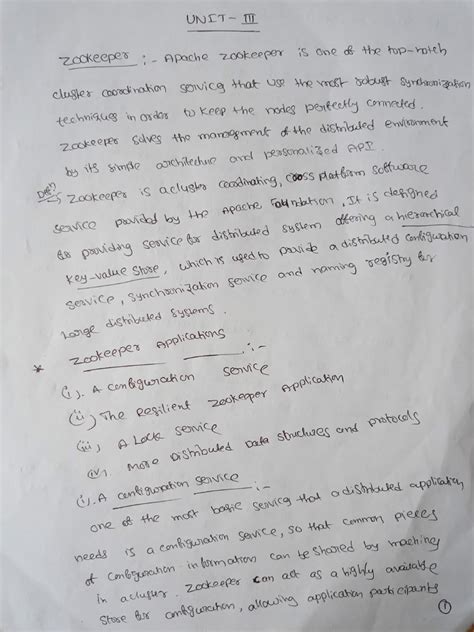 UNIT - III
Zookeeper :- Apache Zookeeper is one of the top-notch
cluster coordination service that use the most robust synchronization
techniques in order to keep the nodes perfectly connected.
Zookeeper solves the management of the distributed environment
by its simple architecture and personalized API.
Def? Zookeeper is a cluster coordinating, cross platform software
service provided by the Apache Foundation, It is designed
for providing service for distributed system offering a hierarchical
key-value store, which is used to provide a distributed configuration
service, synchronization service and naming registry for
large distributed systems.
* Zookeeper Applications :-
(i). A configuration service
(ii) The Resilient Zookeeper Application
(iii) A Lock service
(iv). More Distributed Data structures and protocols
(i). A configuration service :-
one of the most basic service that a distributed application
needs is a configuration service, so that common pieces
of configuration information can be shared by machines
in a cluster. Zookeeper can act as a highly available
store for configuration, allowing application participants
1